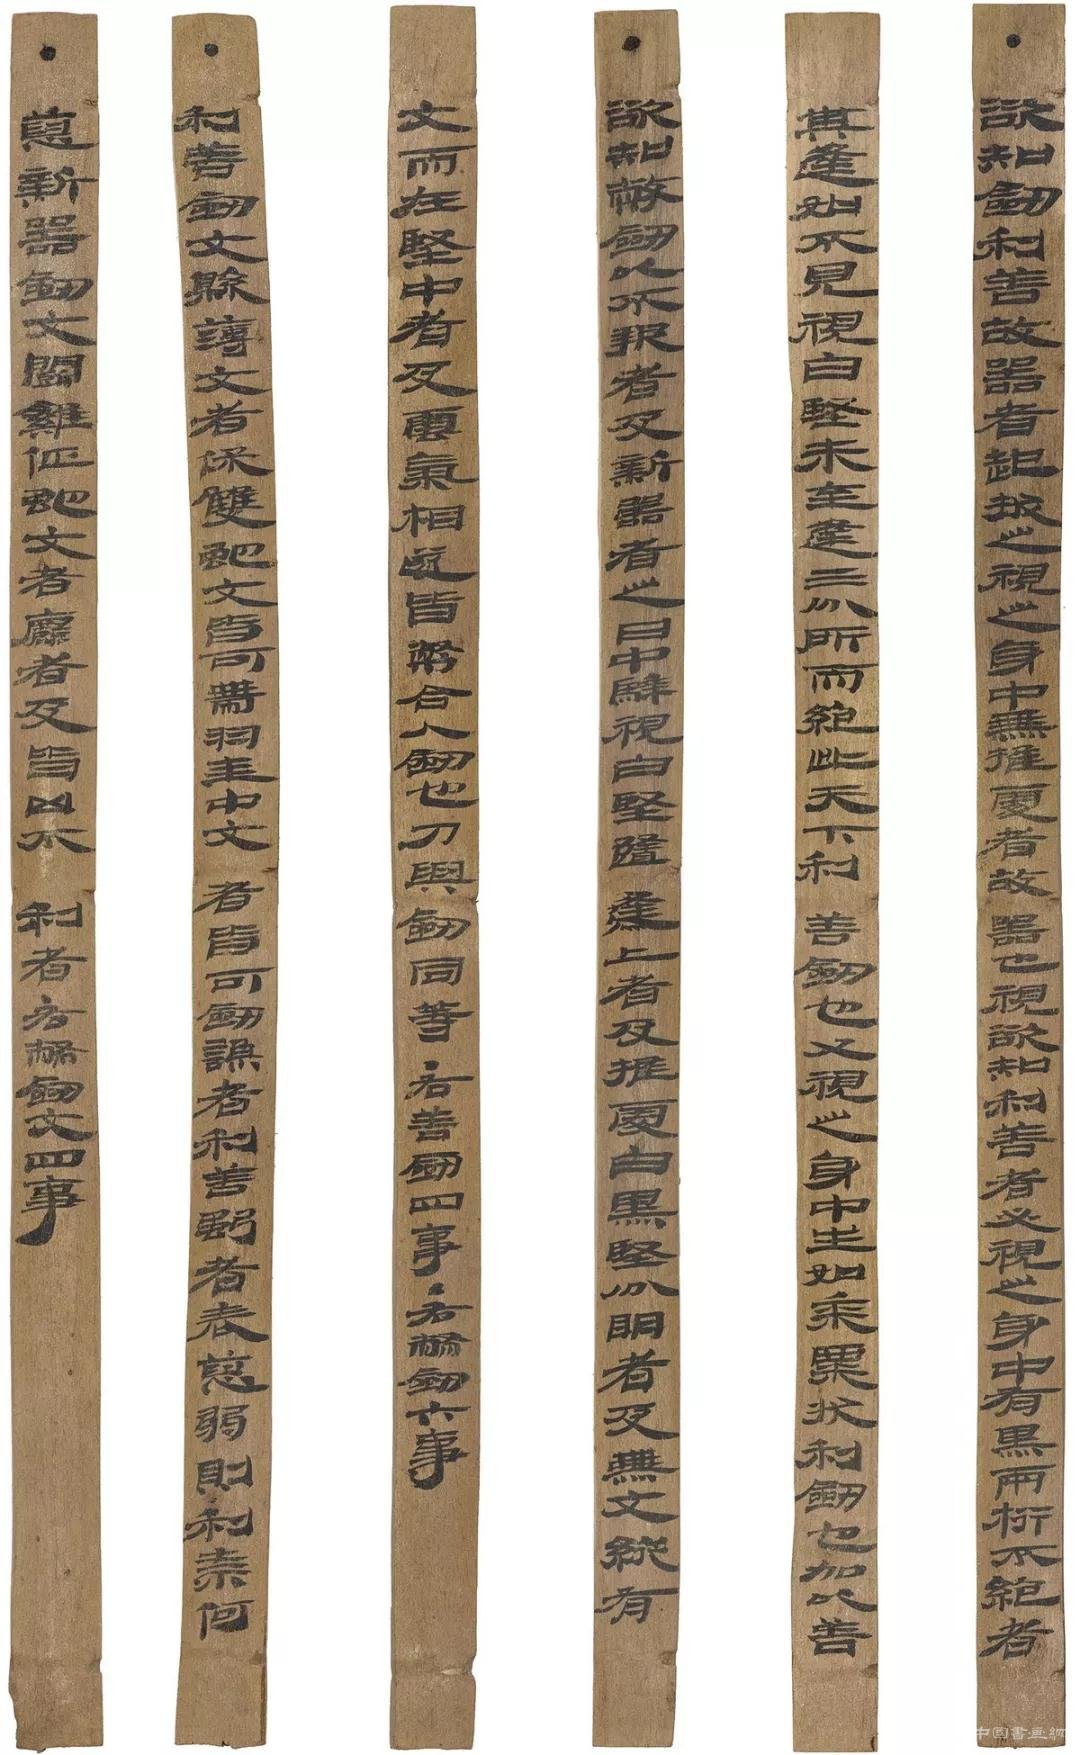 ●欲知劍利善故器者起拔之視之身中無推處者故器也視欲知利善者必視之身中有黑兩桁不絕者
其逢如不見視白堅未至逢三分所而絕此天下利善劍也又視之身中生如黍粟狀利劍也加以善
●欲知幣劍以不報者及新器者之日中騂視白堅隨逢上者及推處白黑堅分明者及無文縱有
文而在堅中者及雲氣相遂皆幣合人劍也刀與劍同等●右善劍四事●右幣劍六事
●利善劍文縣薄文者保雙蛇文皆可帶羽圭中文者皆可劍謙者利善強者表惡弱則利奈何
●惡新器劍文鬭雞佂蛇文者麤者及皆凶不利者右幣劍文四事
中國書畫網